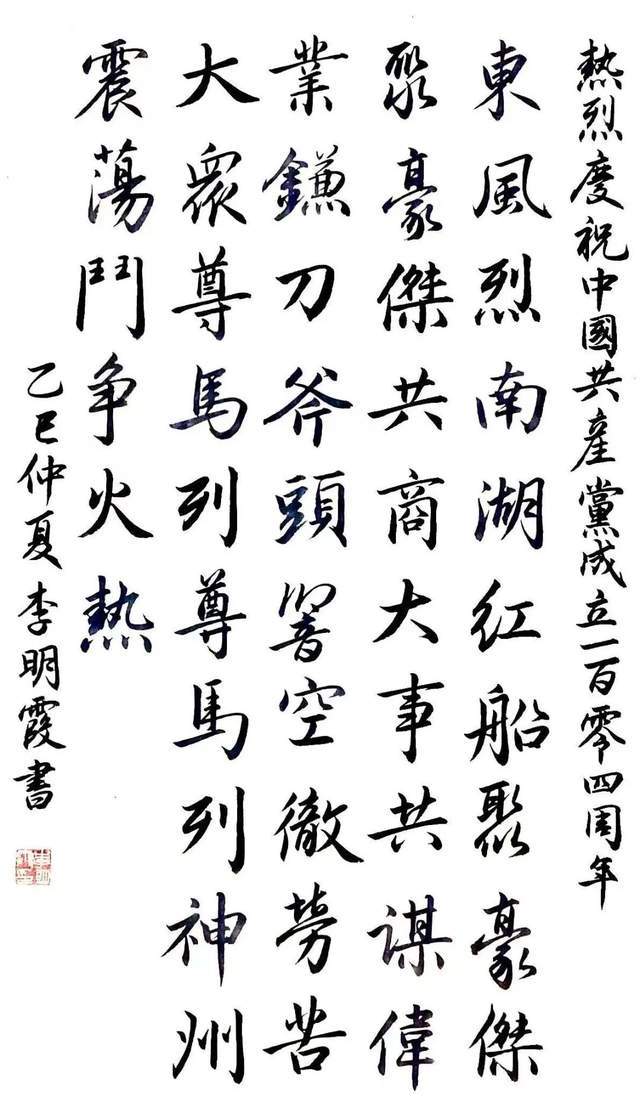 熱烈慶祝中國共產黨成立一百零四周年
東風烈南湖红船聚豪傑
聚豪傑共商大事共謀偉
業鐮刀斧頭響空徹勞苦
大衆尊馬列尊馬列神州
震蕩鬥争火熱
乙巳仲夏李明霞書